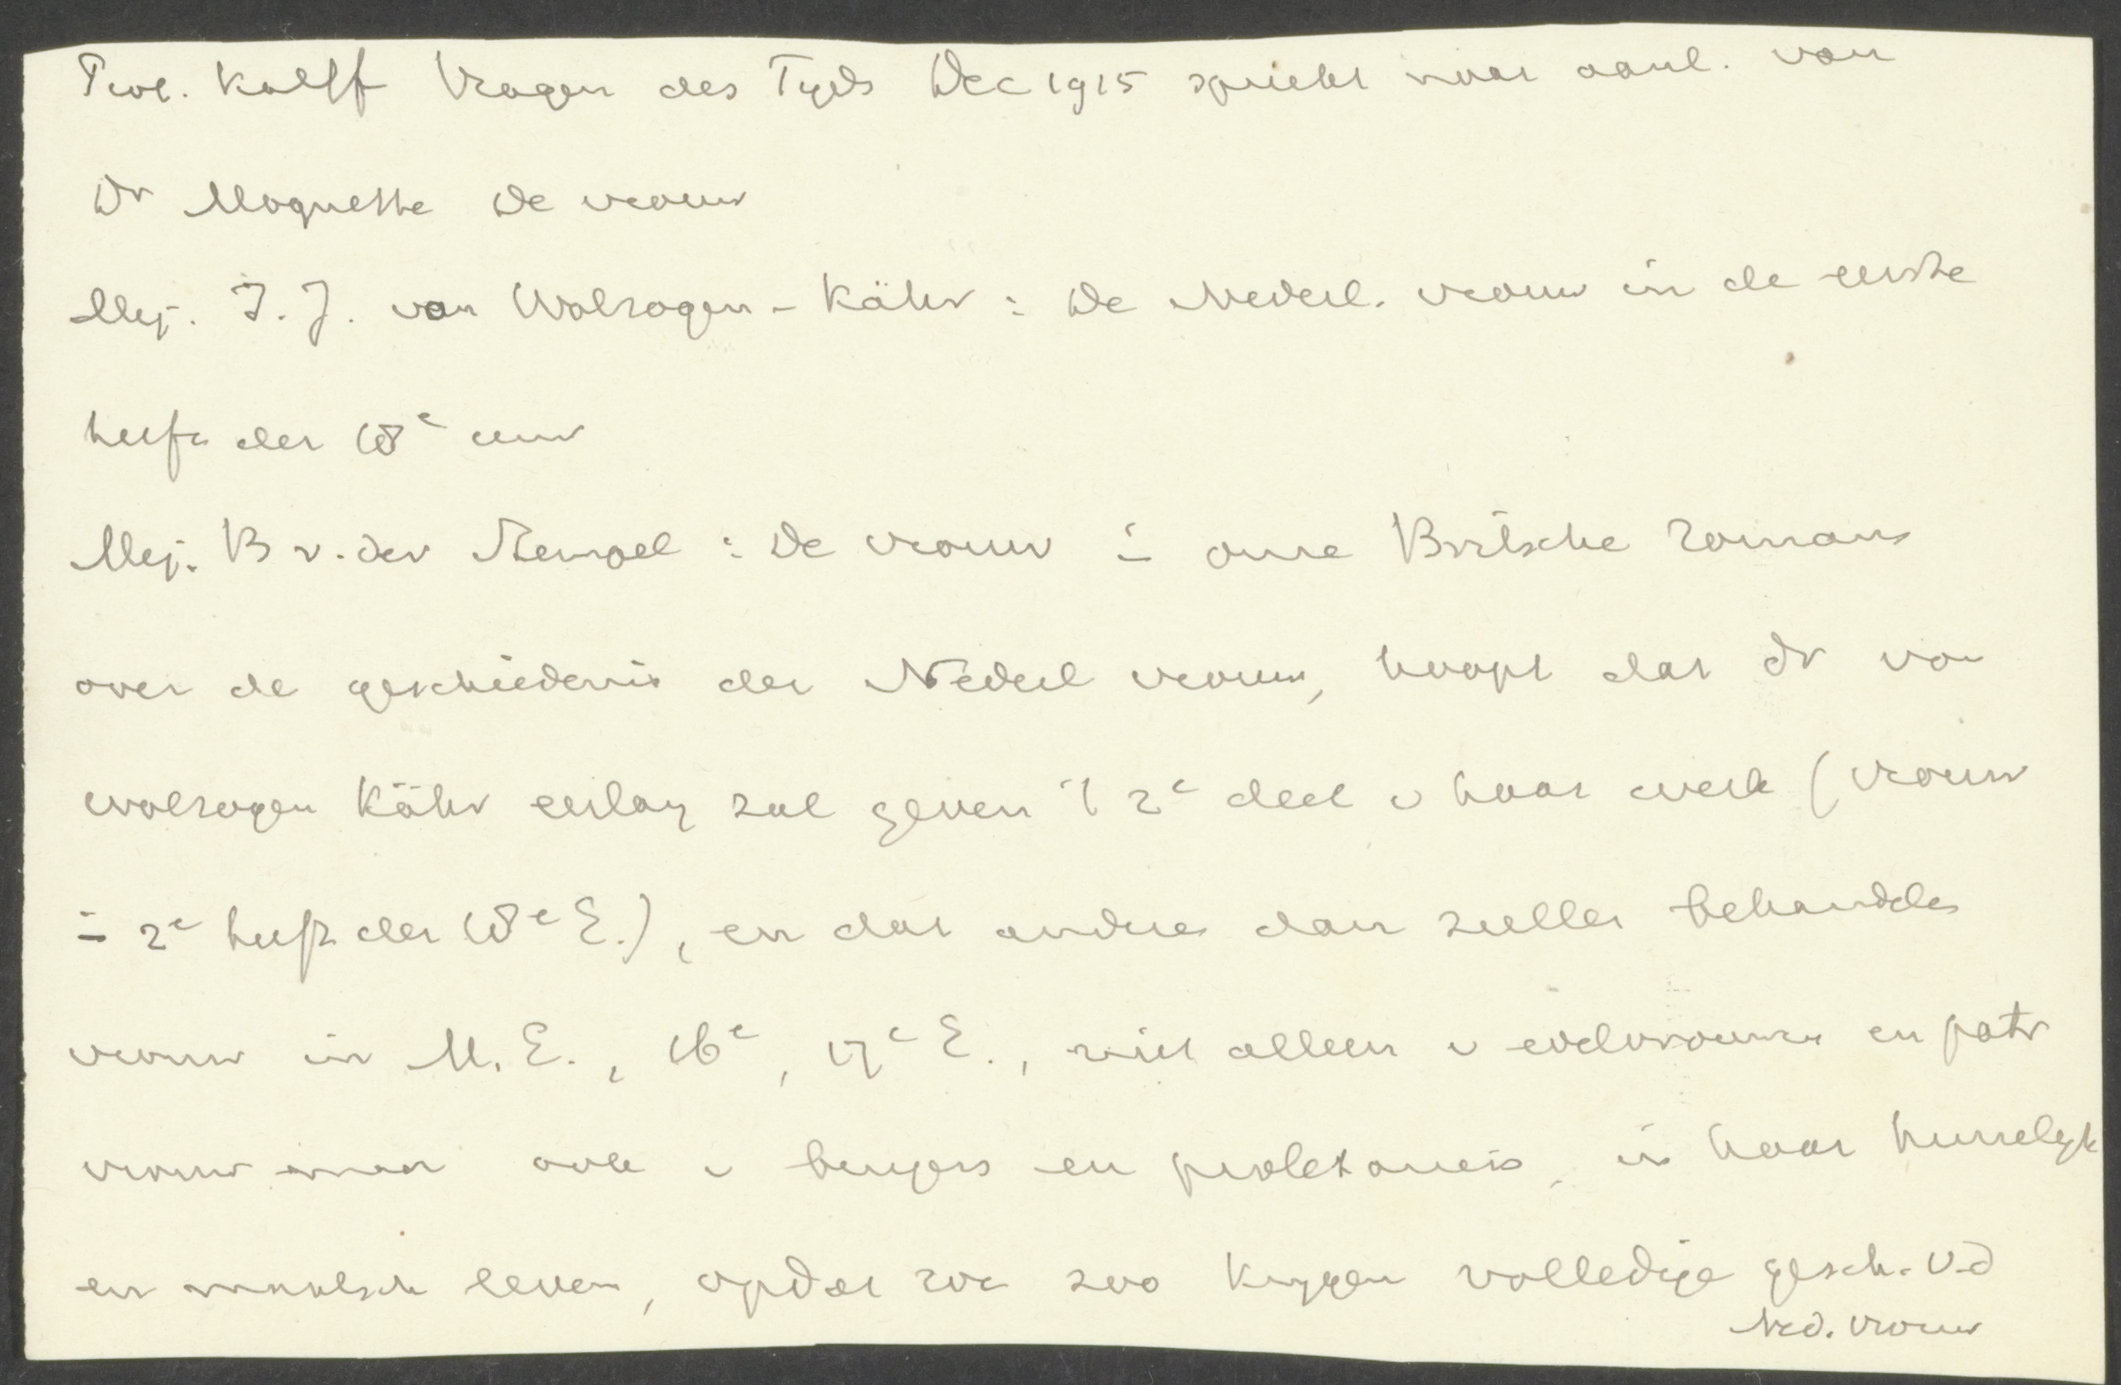 Prof. Kalff Vragen des Tyds Dec 1915 spreekt naar aanl. van
Dr Moquette De vrouw
Mej. I. J. van Wolzogen-Kühr: De Nederl. vrouw in de eerste
helft der 18e eeuw
Mej. B v. der Stempel: De vrouw i onze Britsche romans
over de geschiedenis der Nederl vrouw, hoopt dat dr van
Wolzogen Kühr eerlang zal geven 't 2e deel v haar werk (vrouw
i 2e helft der 18e E.), en dat andere dan zullen behandelen
vrouw in M. E., 16e, 17e E., niet alleen v edelvrouwen en patr
vrouw maar ook v burgers en proletariers, in haar huiselyk
en leven, opdat we zoo krygen volledige gesch. v.d
Ned. vrouw